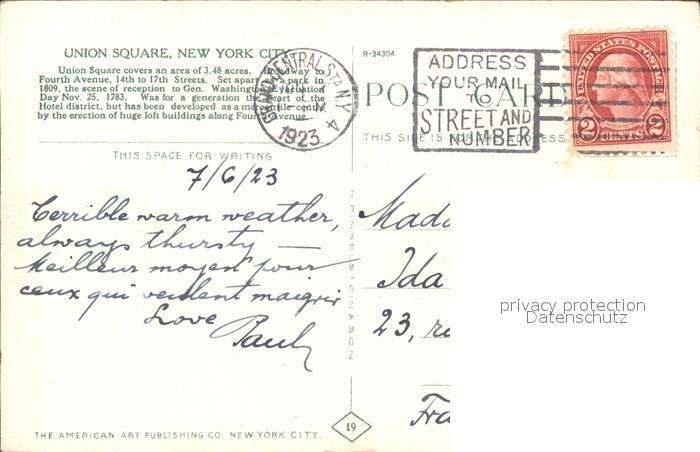 UNION SQUARE, NEW YORK CITY
Union Square covers an area of 3.48 acres. Broadway to
Fourth Avenue, 14th to 17th Streets. Set apart as a park in
1809, the scene of reception to Gen. Washington Evacuation
Day Nov. 25, 1783. Was for a generation the heart of the
Hotel district, but has been developed as a mercantile centre
by the erection of huge loft buildings along Fourth Avenue.
GRAND CENTRAL STA. N.Y.
4
1923
R-34304
ADDRESS
YOUR MAIL
TO
STREET AND
NUMBER
POST CARD
THIS SIDE IS FOR ADDRESS
UNITED STATES POSTAGE
2 CENTS 2
THIS SPACE FOR WRITING
7/6/23
Terrible warm weather,
always thursty —
Meilleur moyen pour
ceux qui veulent maigrir
Love
Paul
Mada
Ida
23, ru
Fra
privacy protection
Datenschutz
19
THE AMERICAN ART PUBLISHING CO. NEW YORK CITY.